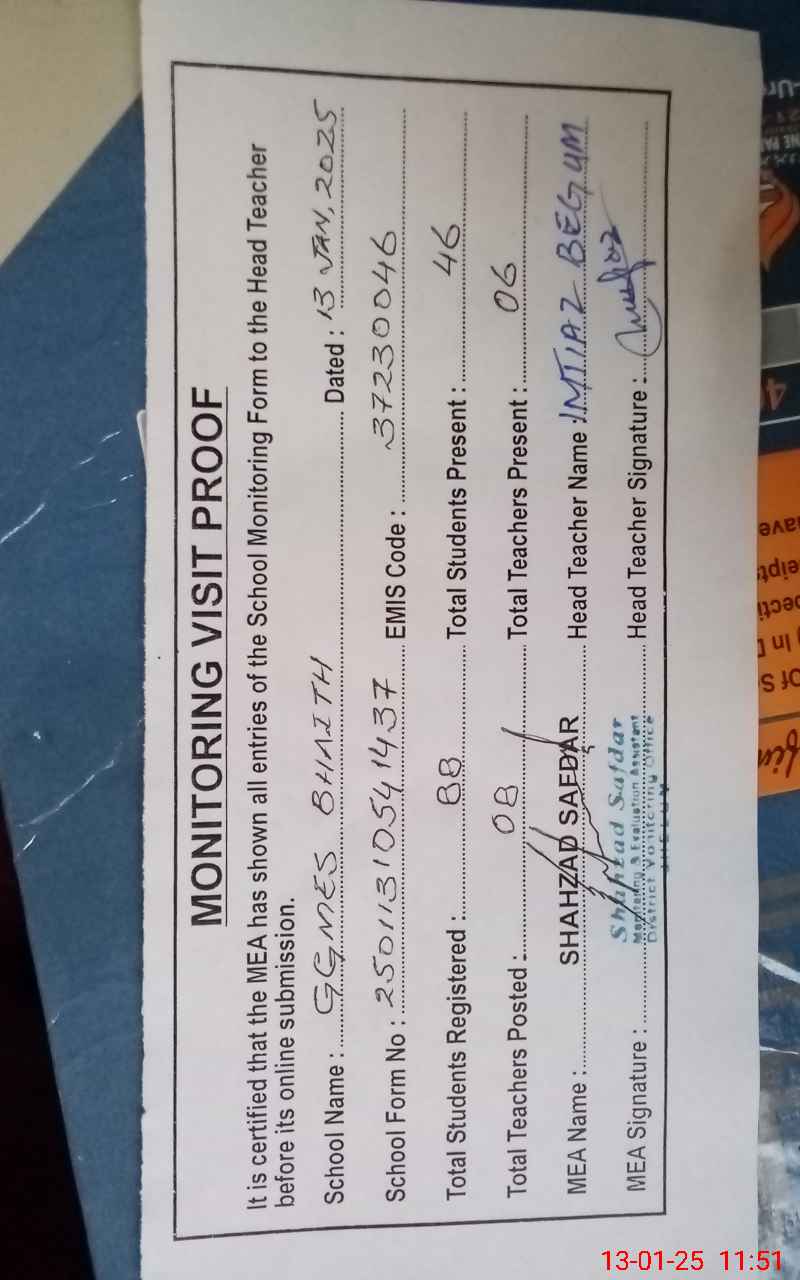 MONITORING VISIT PROOF
It is certified that the MEA has shown all entries of the School Monitoring Form to the Head Teacher
before its online submission.
School Name : GGMES BHAITH Dated : 13 JAN, 2025
School Form No : 25011310541437 EMIS Code : 37230046
Total Students Registered : 88 Total Students Present : 46
Total Teachers Posted : 08 Total Teachers Present : 06
MEA Name : SHAHZAD SAFDAR Head Teacher Name : IMTIAZ BEGUM
MEA Signature : Head Teacher Signature :
Shahzad Safdar
Monitoring & Evaluation Assistant
District Monitoring Office
13-01-25 11:51